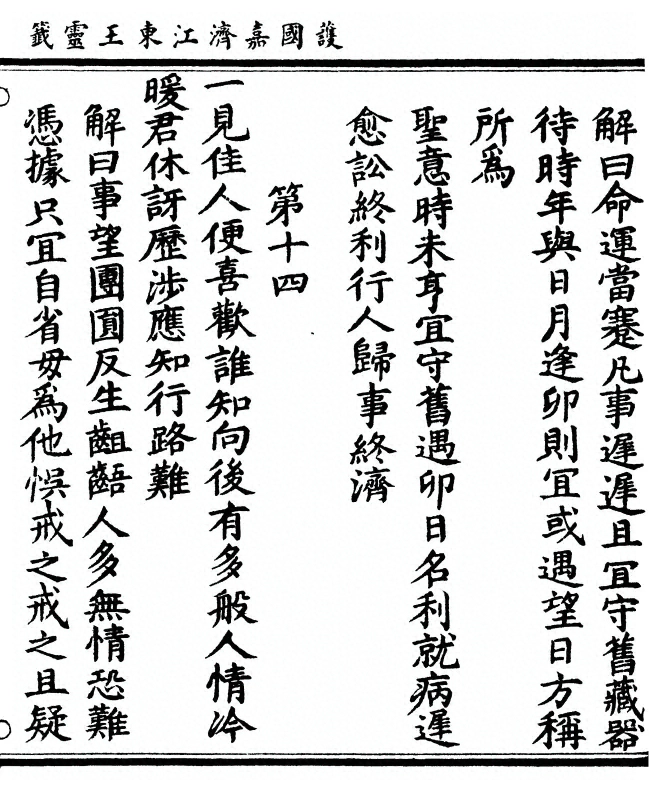 護國嘉濟江東王靈籤
解曰命運當蹇凡事遲遲且宜守舊藏器
待時年與日月逢卯則宜或遇望日方稱
所爲
聖意時未亨宜守舊遇卯日名利就病遲
愈訟終利行人歸事終濟
第十四
一見佳人便喜歡誰知向後有多般人情冷
暖君休訝歷涉應知行路難
解曰事望團圓反生齟齬人多無情恐難
憑據只宜自省毋爲他悞戒之戒之且疑